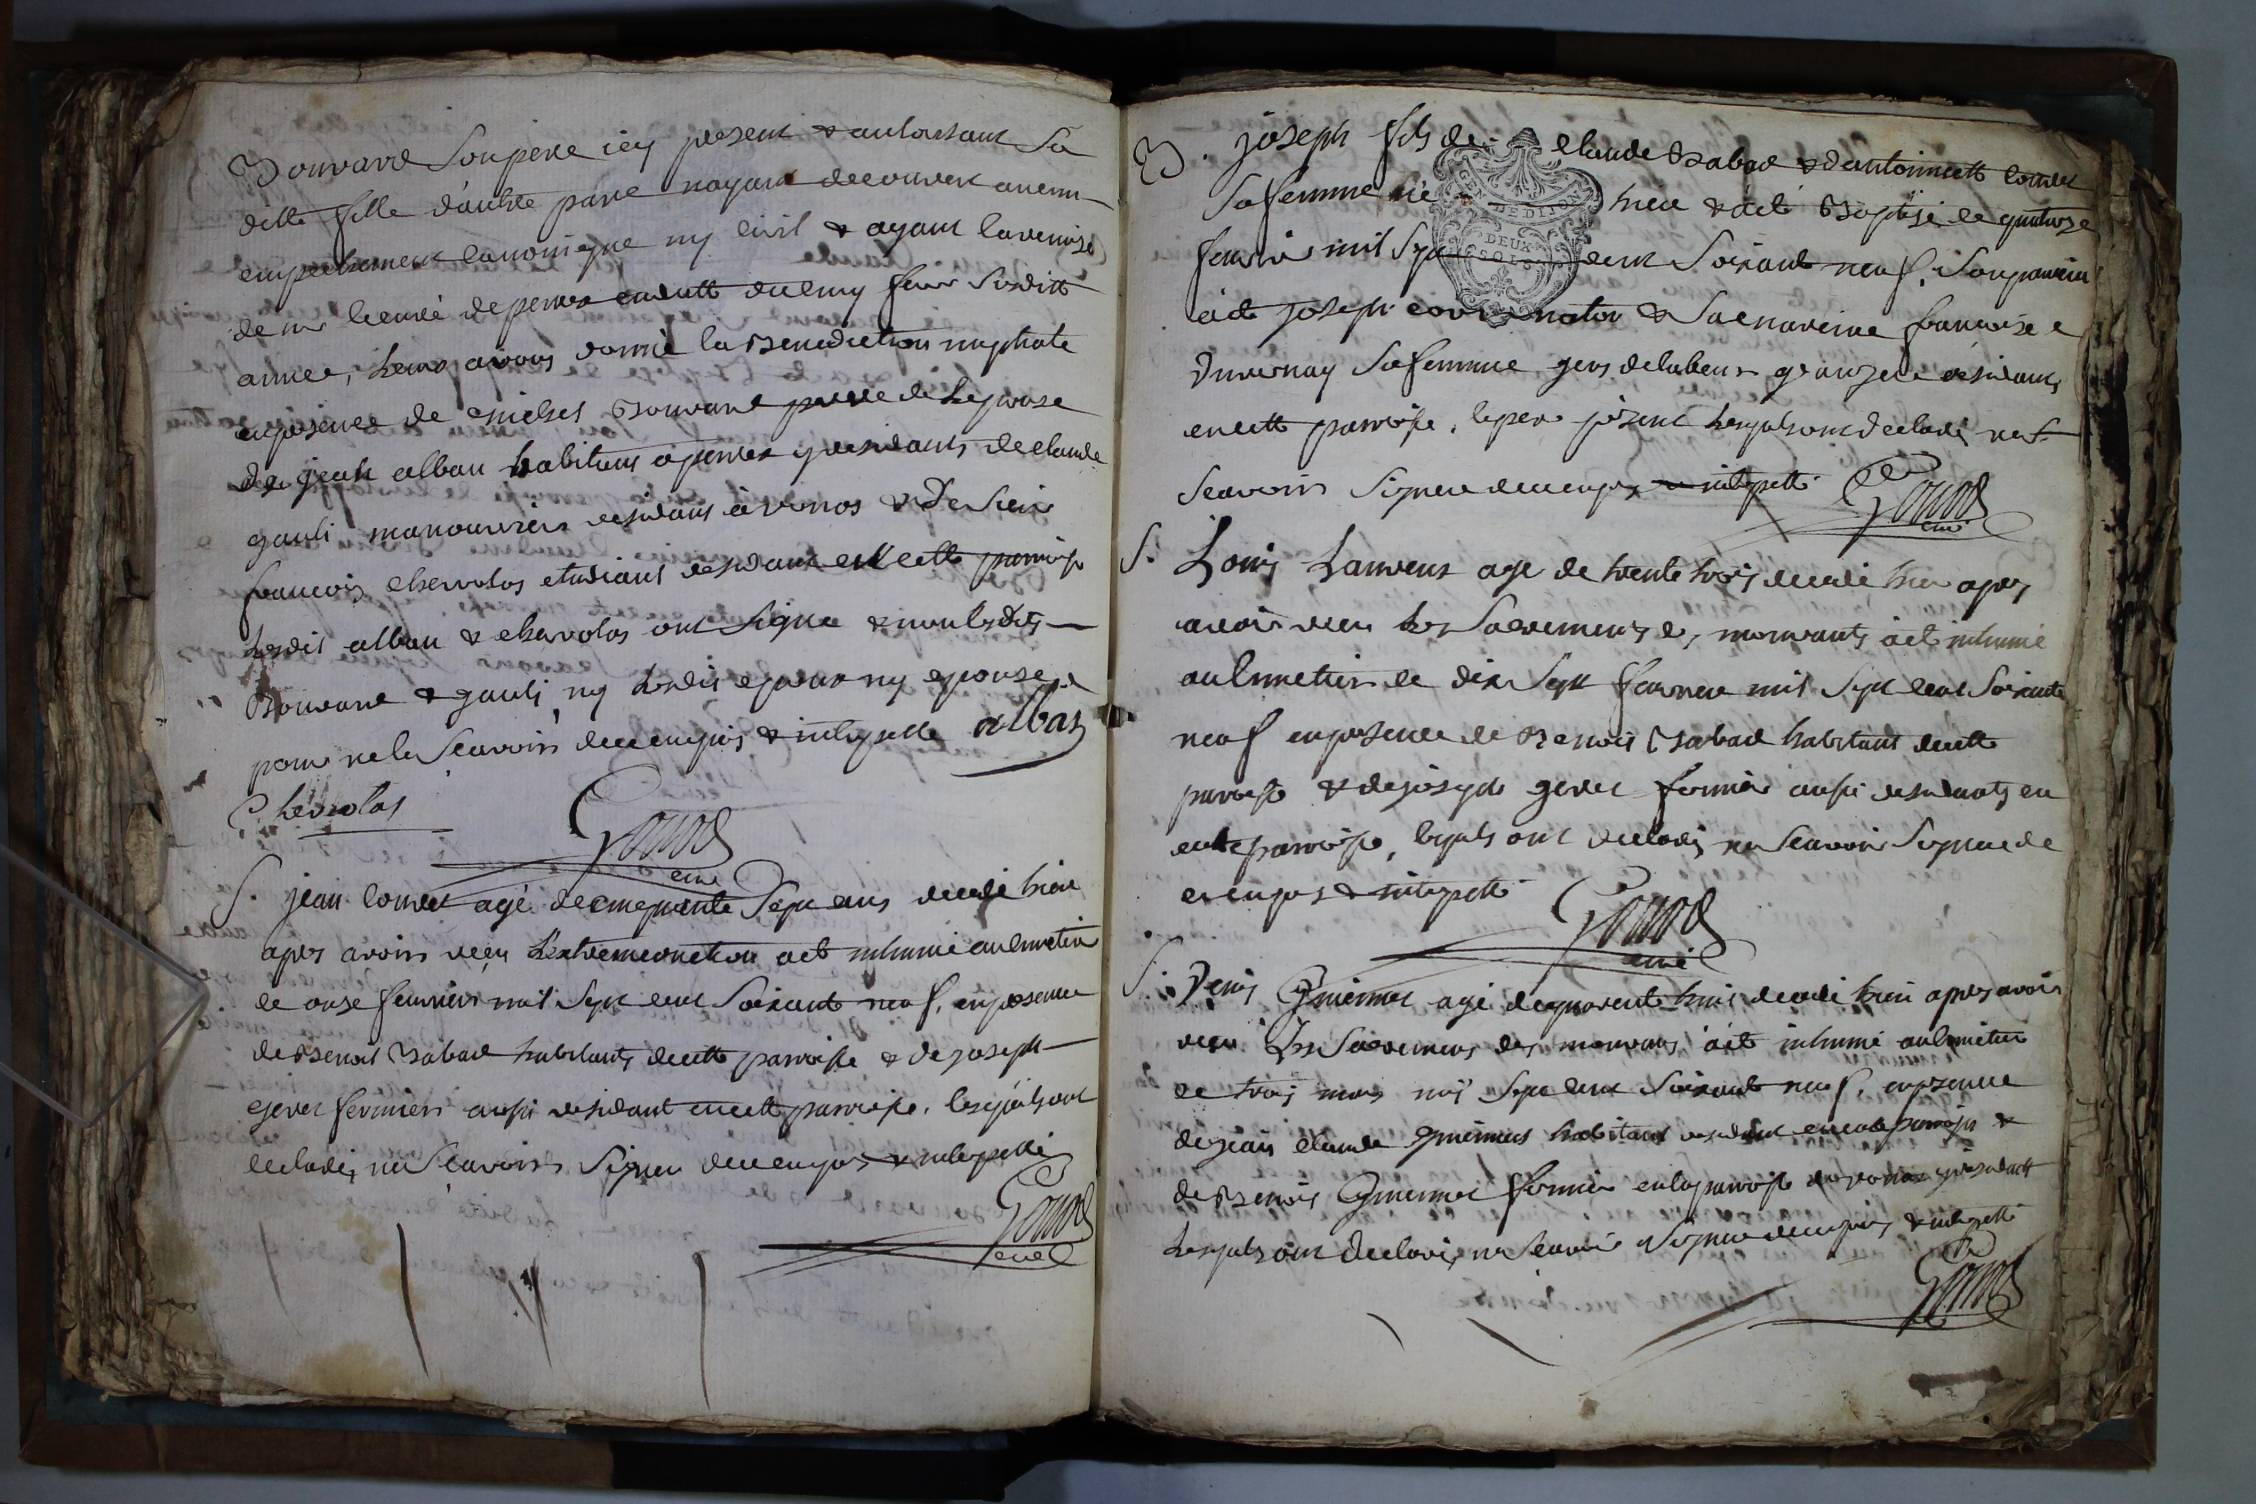 Bouvard son pere icy present & autorisant sa
ditte fille d'autre part n'ayant decouvert aucun
empechement canonique ny civil & ayant la remise
de mr le curé de perreux en datte du cinq fevr susditte
année, leurs avons donné la Benediction nuptiale
en presence de michel Bouvard pere de l'epouse
de jean alban habitans a perreux y residants de claude
gauli manouvrier residant à vernos & de sieur
francois chervolas etudiant residant en cette paroisse
lesdit alban & chervolas ont signé & non lesdits
Bouvard & gauli ny lesdit epoux ny epouse
pour ne le scavoir de ce enquis & interpellé alban
Chervolas
Gonod
curé
S. jean comet agé de cinquante sept ans decedé hier
apres avoir reçu l'extremeonction a eté inhumé au cimetier
le onze fevrier mil sept cent soixante neuf, en presence
de Benoit Rabad habitants de cette paroisse & de joseph
geret fermier aussi residant en cette paroisse, lesquels ont
declarés ne scavoir signer de ce enquis & interpellé
Gonod
curé
B. joseph fils de claude Rabad & d'antoinette comet
sa femme né hier a été Baptisé le quatorze
fevrier mil sept cent soixante neuf, son parrein
a été joseph & sa mareine francoise
Duvernay sa femme gens de labeur granger residants
en cette paroisse, le pere present lesquels ont declarés ne
scavoir signer de ce enquis & interpellé Gonod
curé
S. Louis Laurent agé de trente trois decedé hier apres
avoir recu les Sacrements des mourants a eté inhumé
au cimetier le dix sept fevrier mil sept cent soixante
neuf en presence de Benoit Rabad habitant de cette
paroisse & de joseph geret fermier aussi residants en
cette paroisse, lesquels ont declarés ne scavoir signer de
ce enquis & interpellé
Gonod
curé
S. Denis Guiennet agé de quarente huit decedé hier apres avoir
recu les Sacremens des mourans a eté inhumé au cimetier
le trois mars mil sept cent soixante neuf, en presence
de jean claude Guiennet habitant residant en cette paroisse &
de Benoit Guiennet fermier en la paroisse de y residant
lesquels ont declarés ne scavoir signer de ce enquis & interpellé
Gonod
GEN. DE DIJON
DEUX
SOLS